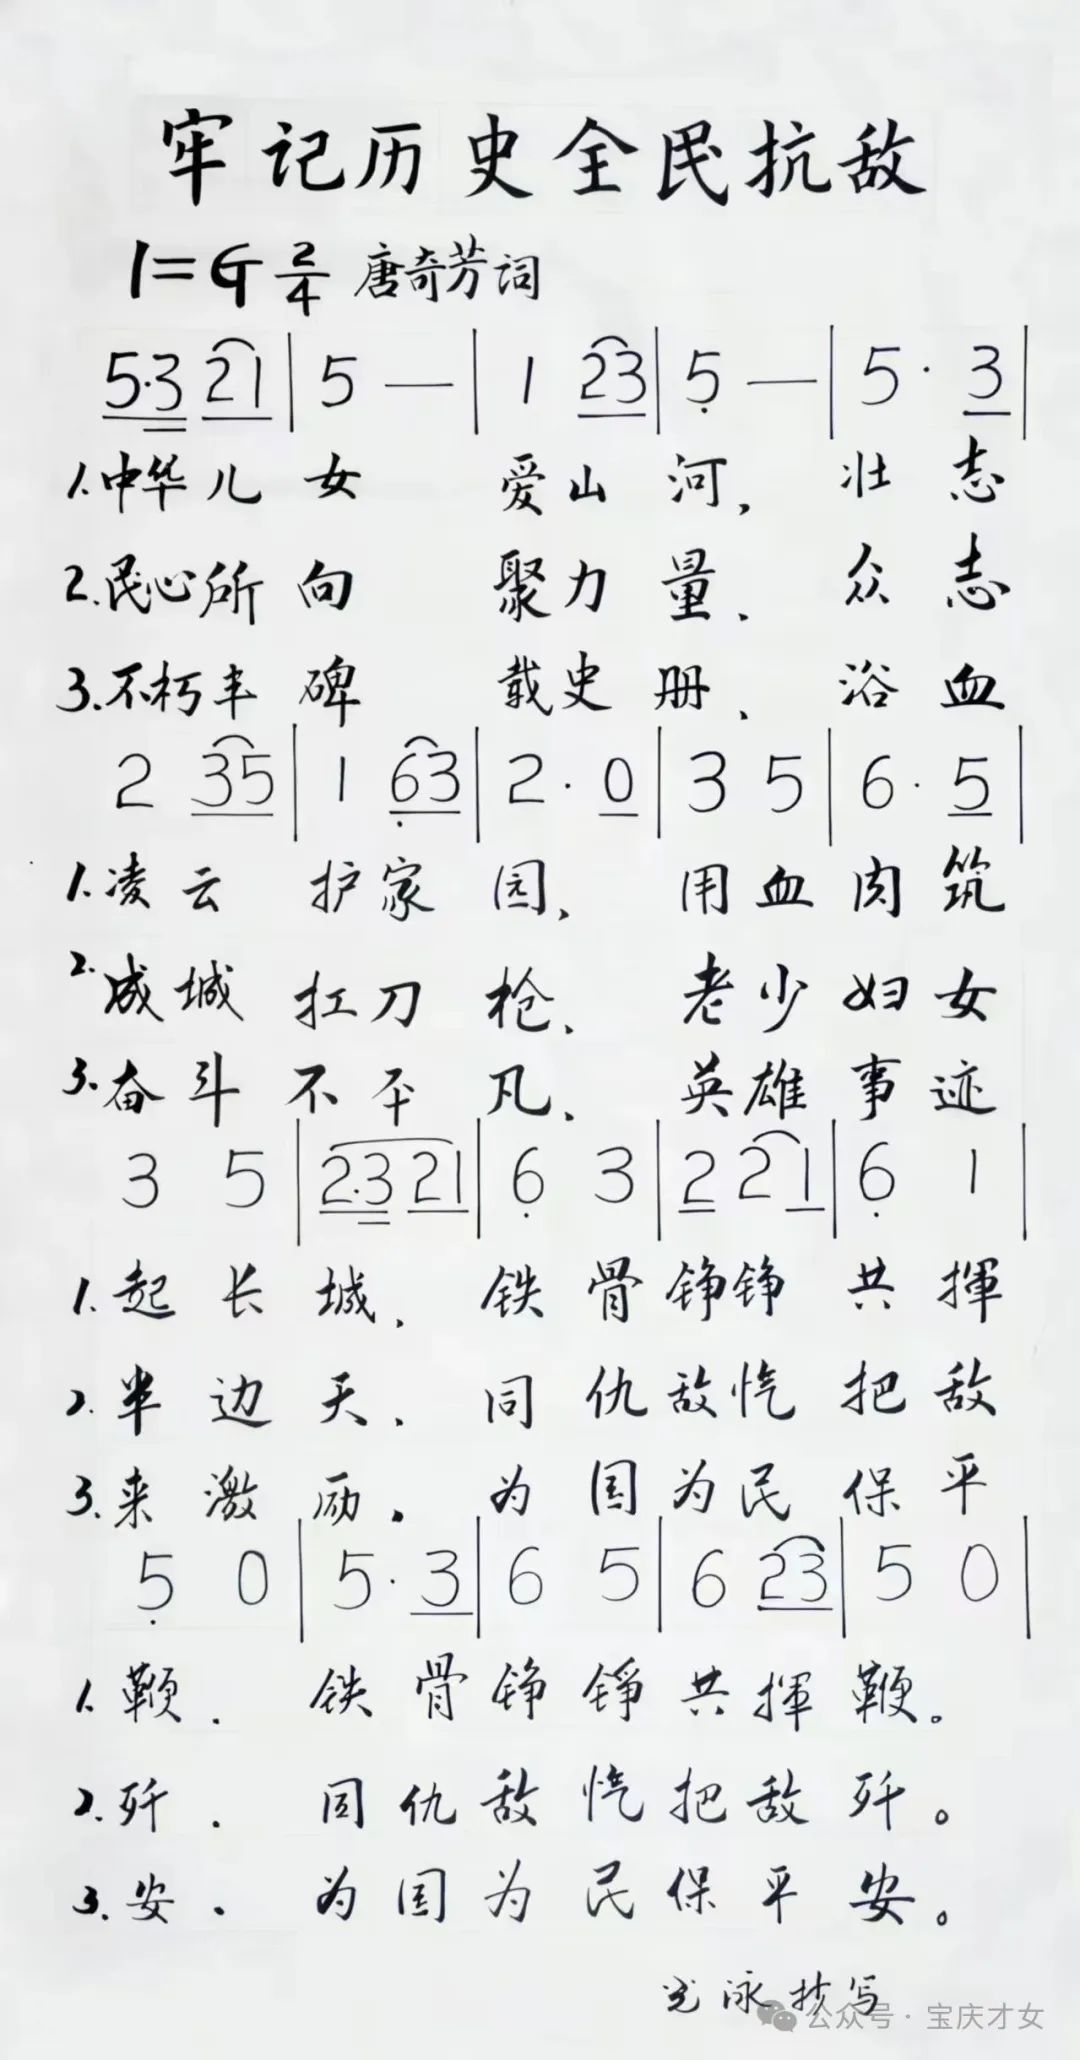 牢记历史全民抗敌
1=G 2/4 唐奇芳词
5·3 21 | 5 — | 1 23 | 5 — | 5· 3 |
1.中华儿女 爱山河, 壮志
2.民心所向 聚力量, 众志
3.不朽丰碑 载史册, 浴血
2 35 | 1 63 | 2· 0 | 3 5 | 6· 5 |
1.凌云 护家园, 用血肉筑
2.成城 扛刀枪, 老少妇女
3.奋斗不平凡, 英雄事迹
3 5 | 2·3 21 | 6 3 | 2 2 1 | 6 1 |
1.起长城, 铁骨铮铮 共揮
2.半边天, 同仇敌忾 把敌
3.来激励, 为国为民 保平
5 0 | 5· 3 | 6 5 | 6 23 | 5 0 |
1.鞭, 铁骨铮铮共揮鞭。
2.歼, 同仇敌忾把敌歼。
3.安, 为国为民保平安。
光泳抄写
公众号·宝庆才女